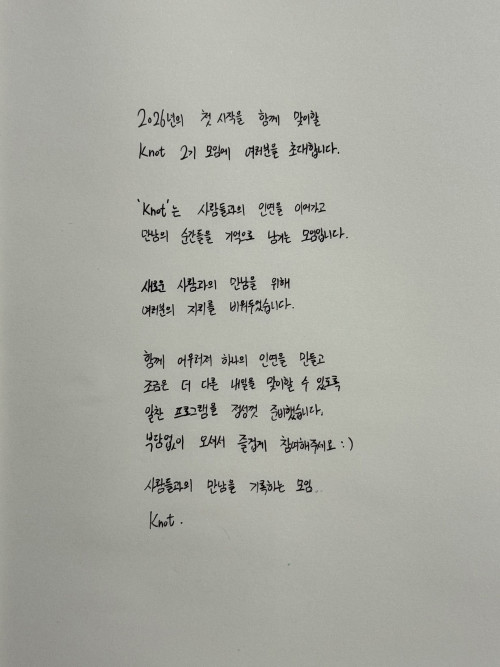 2026년의 첫 시작을 함께 맞이할
Knot 2기 모임에 여러분을 초대합니다.
'Knot'는 사람들과의 인연을 이어가고
만남의 순간들을 기억으로 남기는 모임입니다.
새로운 사람과의 만남을 위해
여러분의 자리를 비워두었습니다.
함께 어우러져 하나의 인연을 만들고
조금은 더 다른 내일을 맞이할 수 있도록
알찬 프로그램을 정성껏 준비했습니다.
부담없이 오셔서 즐겁게 참여해주세요 :)
사람들과의 만남을 기록하는 모임..
Knot.